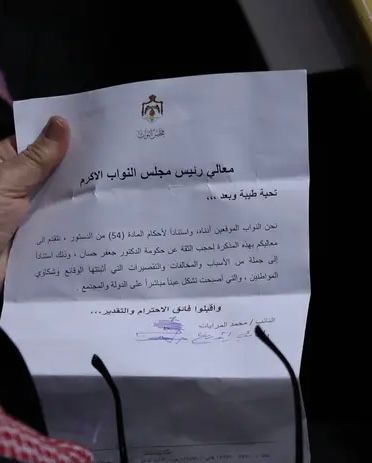 مجلس النواب
معالي رئيس مجلس النواب الاكرم
تحية طيبة وبعد ،،،
نحن النواب الموقعين أدناه، واستناداً لأحكام المادة (54) من الدستور ، نتقدم إلى
معاليكم بهذه المذكرة لحجب الثقة عن حكومة الدكتور جعفر حسان ، وذلك استناداً
إلى جملة من الأسباب والمخالفات والتقصيرات التي أثبتتها الوقائع وشكاوي
المواطنين ، والتي أصبحت تشكل عبئاً مباشراً على الدولة والمجتمع .
وأقبلوا فائق الاحترام والتقدير،،،
النائب / محمد المرايات